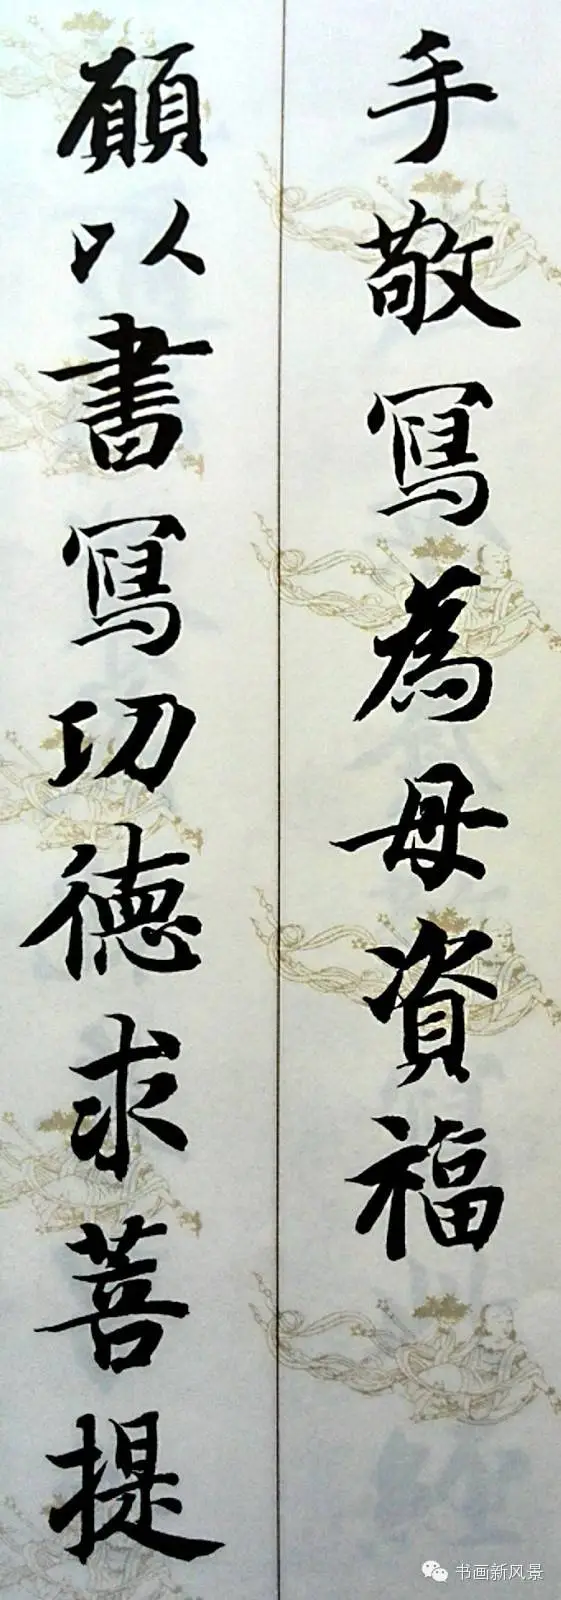 手敬寫為母資福
願以書寫功德求菩提
书画新风景